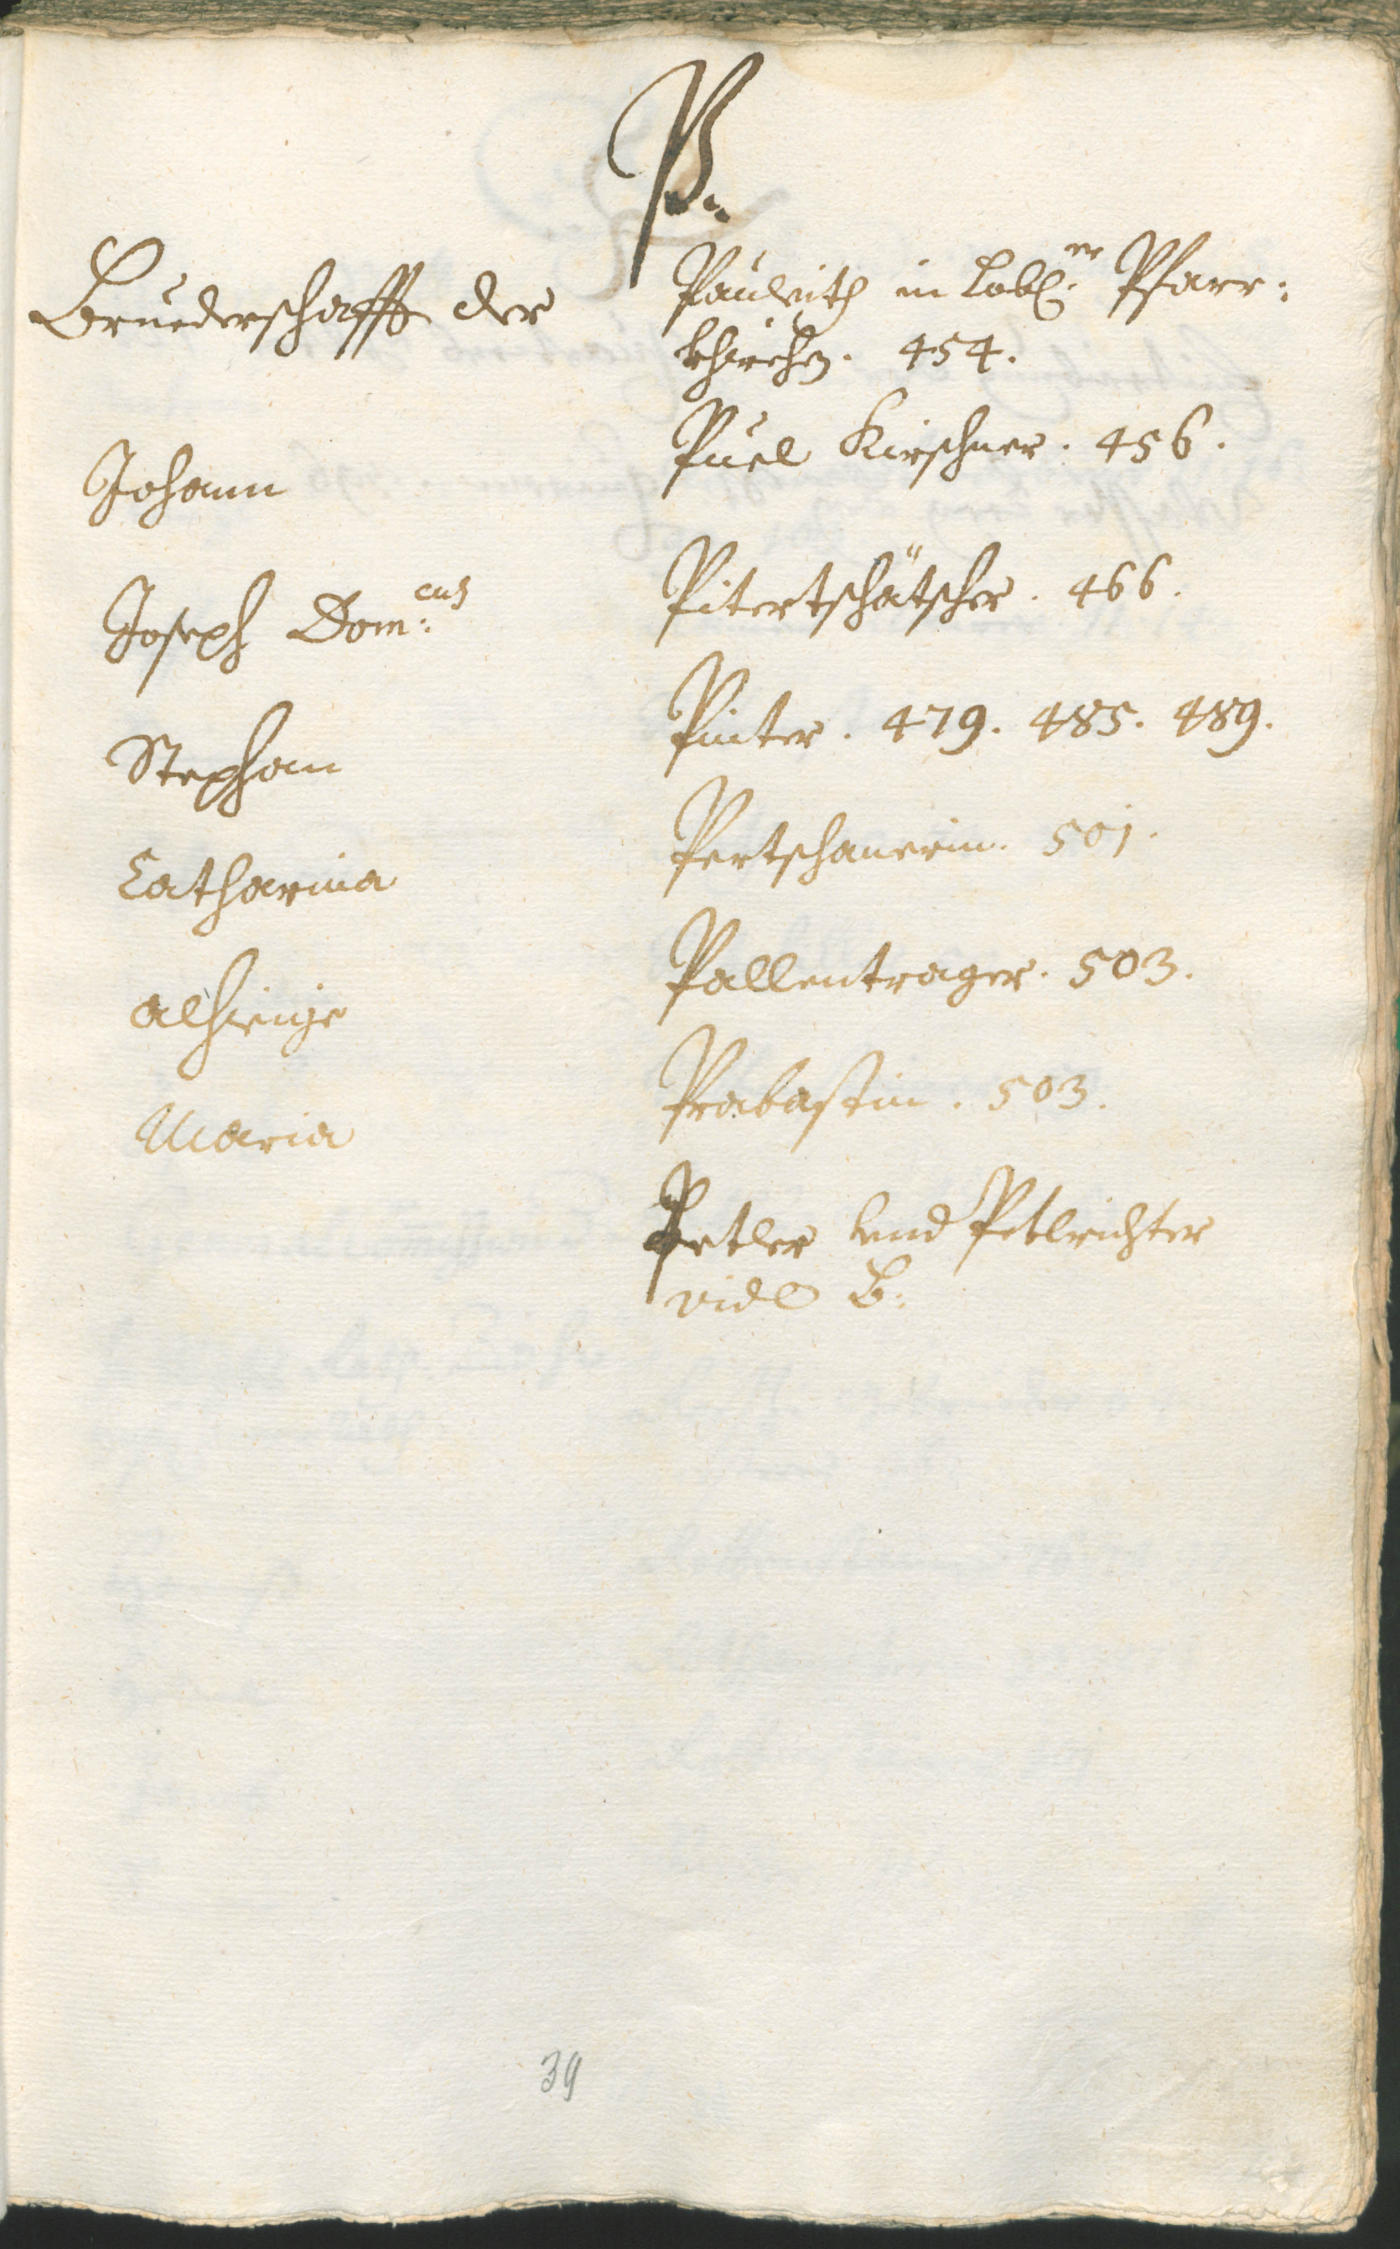 P.
Bruederschafft der Pauleith in lobl:er Pfarr:
khirchen. 454.
Johann Puel Kirschner. 456.
Joseph Dom:cus Pitertschätscher. 466.
Stephan Pinter. 479. 485. 489.
Catharina Pertschanerin. 501.
Alhieige Pallentrager. 503.
Maria Prabastin. 503.
Petler und Petlrichter
vide B.
39